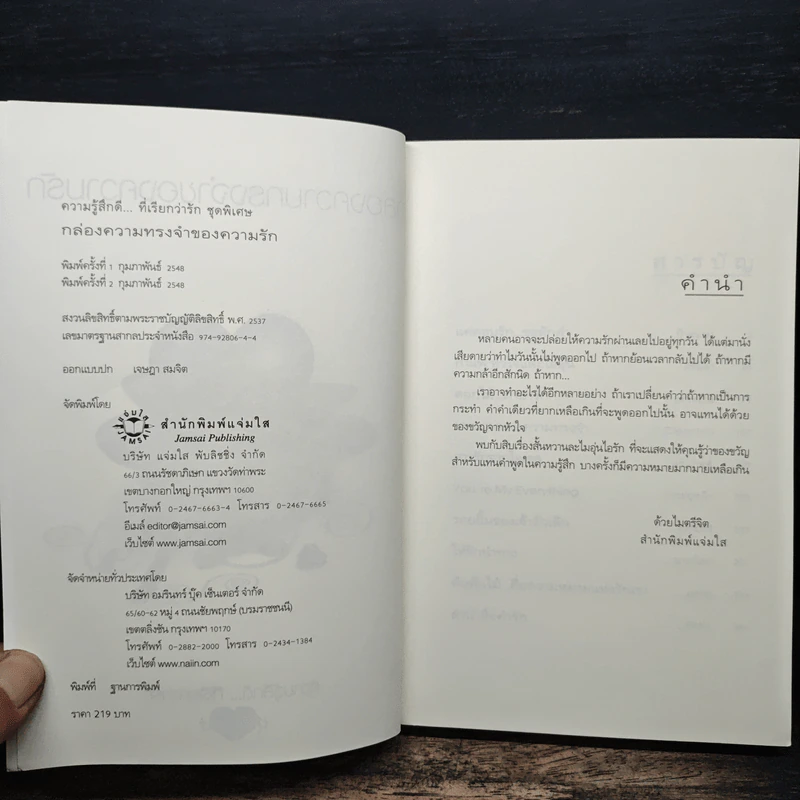 ความรู้สึกดี... ที่เรียกว่ารัก ชุดพิเศษ
กล่องความทรงจำของความรัก
พิมพ์ครั้งที่ 1 กุมภาพันธ์ 2548
พิมพ์ครั้งที่ 2 กุมภาพันธ์ 2548
สงวนลิขสิทธิ์ตามพระราชบัญญัติลิขสิทธิ์ พ.ศ. 2537
เลขมาตรฐานสากลประจำหนังสือ 974-92806-4-4
ออกแบบปก เจษฎา สมจิต
จัดพิมพ์โดย
แจ่มใส
JAMSAI
สำนักพิมพ์แจ่มใส
Jamsai Publishing
บริษัท แจ่มใส พับลิชชิ่ง จำกัด
66/3 ถนนรัชดาภิเษก แขวงวัดท่าพระ
เขตบางกอกใหญ่ กรุงเทพฯ 10600
โทรศัพท์ 0-2467-6663-4 โทรสาร 0-2467-6665
อีเมล์ editor@jamsai.com
เว็บไซต์ www.jamsai.com
จัดจำหน่ายทั่วประเทศโดย
บริษัท อมรินทร์ บุ๊ค เซ็นเตอร์ จำกัด
65/60-62 หมู่ 4 ถนนชัยพฤกษ์ (บรมราชชนนี)
เขตตลิ่งชัน กรุงเทพฯ 10170
โทรศัพท์ 0-2882-2000 โทรสาร 0-2434-1384
เว็บไซต์ www.naiin.com
พิมพ์ที่ ฐานการพิมพ์
ราคา 219 บาท
คำนำ
หลายคนอาจจะปล่อยให้ความรักผ่านเลยไปอยู่ทุกวัน ได้แต่มานั่ง
เสียดายว่าทำไมวันนั้นไม่พูดออกไป ถ้าหากย้อนเวลากลับไปได้ ถ้าหากมี
ความกล้าอีกสักนิด ถ้าหาก...
เราอาจทำอะไรได้อีกหลายอย่าง ถ้าเราเปลี่ยนคำว่าถ้าหากเป็นการ
กระทำ คำคำเดียวที่ยากเหลือเกินที่จะพูดออกไปนั้น อาจแทนได้ด้วย
ของขวัญจากหัวใจ
พบกับสิบเรื่องสั้นหวานละไมอุ่นไอรัก ที่จะแสดงให้คุณรู้ว่าของขวัญ
สำหรับแทนคำพูดในความรู้สึก บางครั้งก็มีความหมายมากมายเหลือเกิน
ด้วยไมตรีจิต
สำนักพิมพ์แจ่มใส